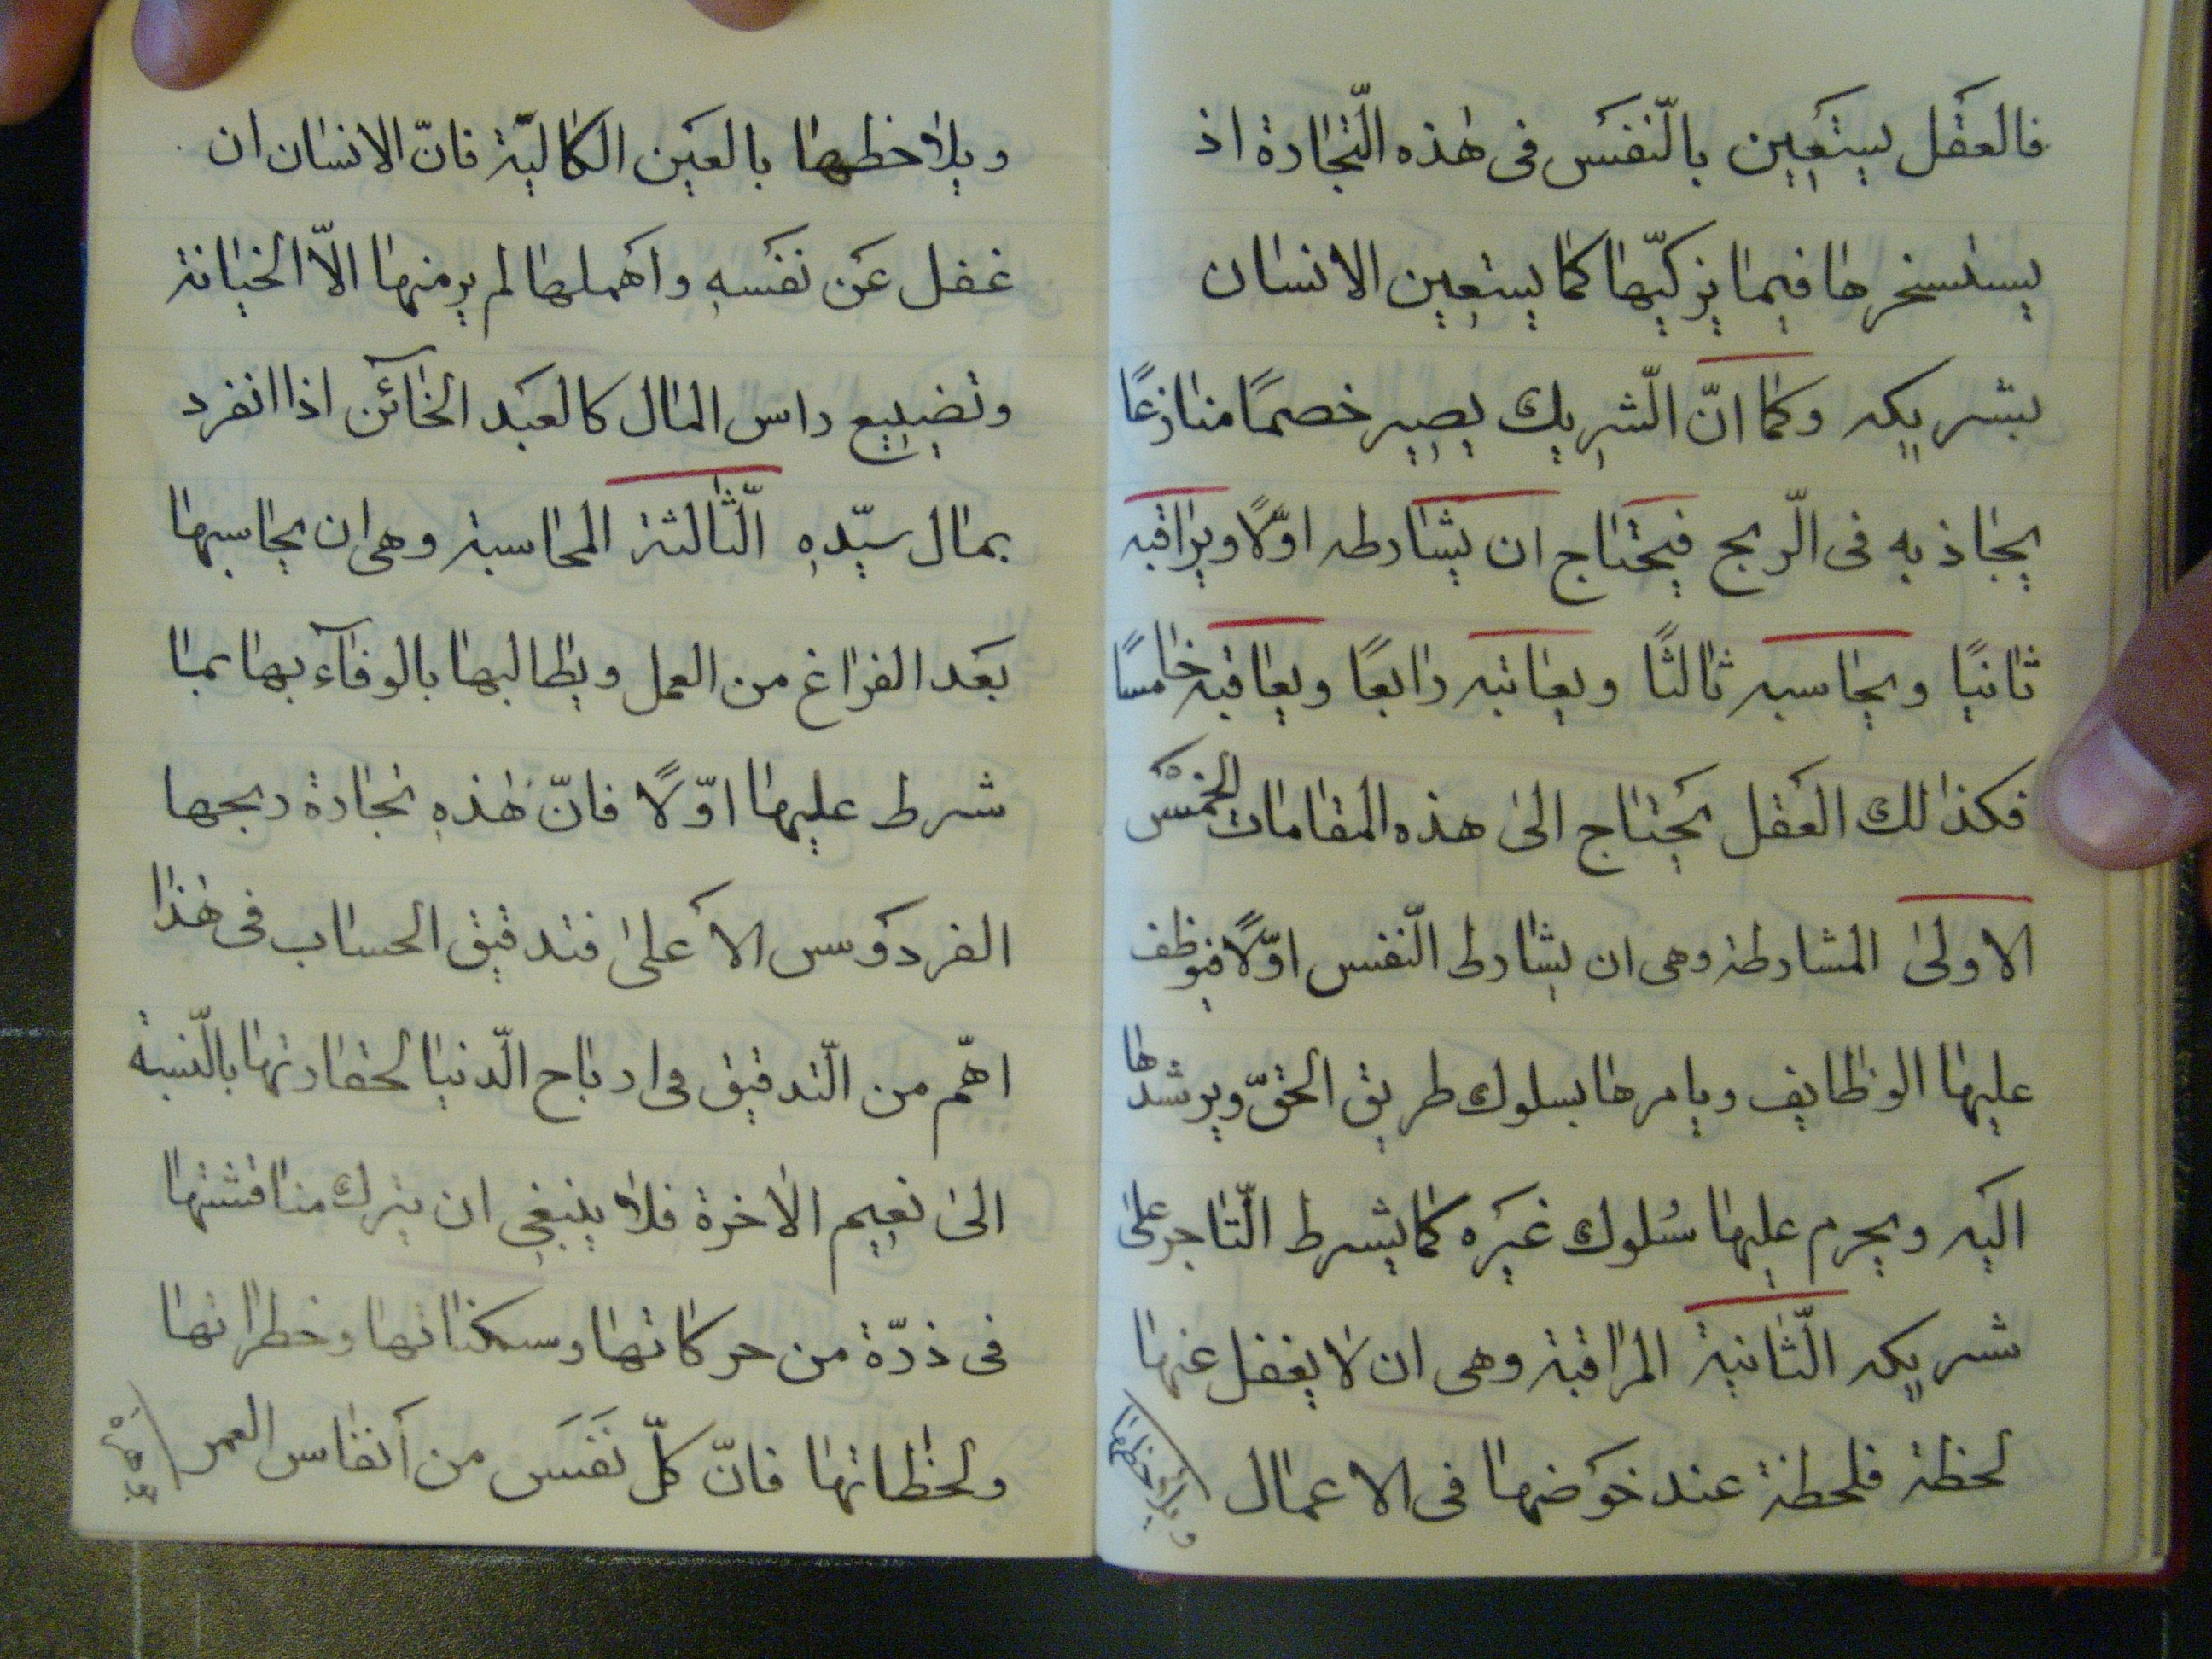 فالعَقل يستَعِين بالنّفَس فى هٰذه التّجٰارة اذ
يستسخرهٰا فيمٰا يزكّيهٰا كمٰا يستعِين الانسٰان
بشريكه وكمٰا انّ الشّرِيك يصِير خصمًا منٰازعًا
يجٰاذبه فى الرّبح فيحتٰاج ان يشٰارطه اوّلًا ويرٰاقبه
ثٰانيًا ويحٰاسبه ثٰالثًا ويعٰاتبه رٰابعًا ويعٰاقبه خٰامسًا
فكذٰلك العَقل يَحتٰاج الىٰ هذه المقٰامٰات الخمْسَ
الاولىٰ المشارطة وهى ان يشٰارط النّفس اوّلًا فيوظف
عليهٰا الوظٰايف ويامرهٰا بسلوك طريق الحقّ ويرشدهٰا
اليَه ويحرم عليهٰا سُلوك غيَره كمٰا يشرط التّٰاجر علىٰ
شريكه الثّٰانية المرٰاقبة وهى ان لٰا يغفل عنهٰا
لحظة فلحظة عند خوَضهٰا فى الاعمٰال
ويلٰاحظهٰا
ويلٰاحظهٰا بالعَين الكٰالئة فانّ الانسٰان ان
غفل عَن نفَسهِ واهَملهٰا لم ير منهٰا الّا الخيٰانة
وتضييع راس المٰال كالعبَد الخٰائَن اذا انفرد
بمٰال سيّدهِ الثّٰالثة المحٰاسبة وهى ان يحٰاسبهٰا
بعَد الفرٰاغ من العمل ويطٰالبهٰا بالوفٰآء بهٰا بمٰا
شرط عليهٰا اوّلًا فانّ هٰذهِ تجٰارة ربحهٰا
الفردوَس الأَعلىٰ فتدقيق الحسٰاب فى هٰذٰا
اهّم من التّدقيق فى ارباح الدّنيٰا لحقٰارتهٰا بالنّسبة
الىٰ نعِيم الٰاخرة فلٰا ينبغى ان يترك منٰاقشتهٰا
فى ذرّة من حركٰاتهٰا وسكنٰاتهٰا وخطرٰاتهٰا
ولحظٰاتهٰا فانّ كلّ نفَسَ من أَنفٰاس العمر